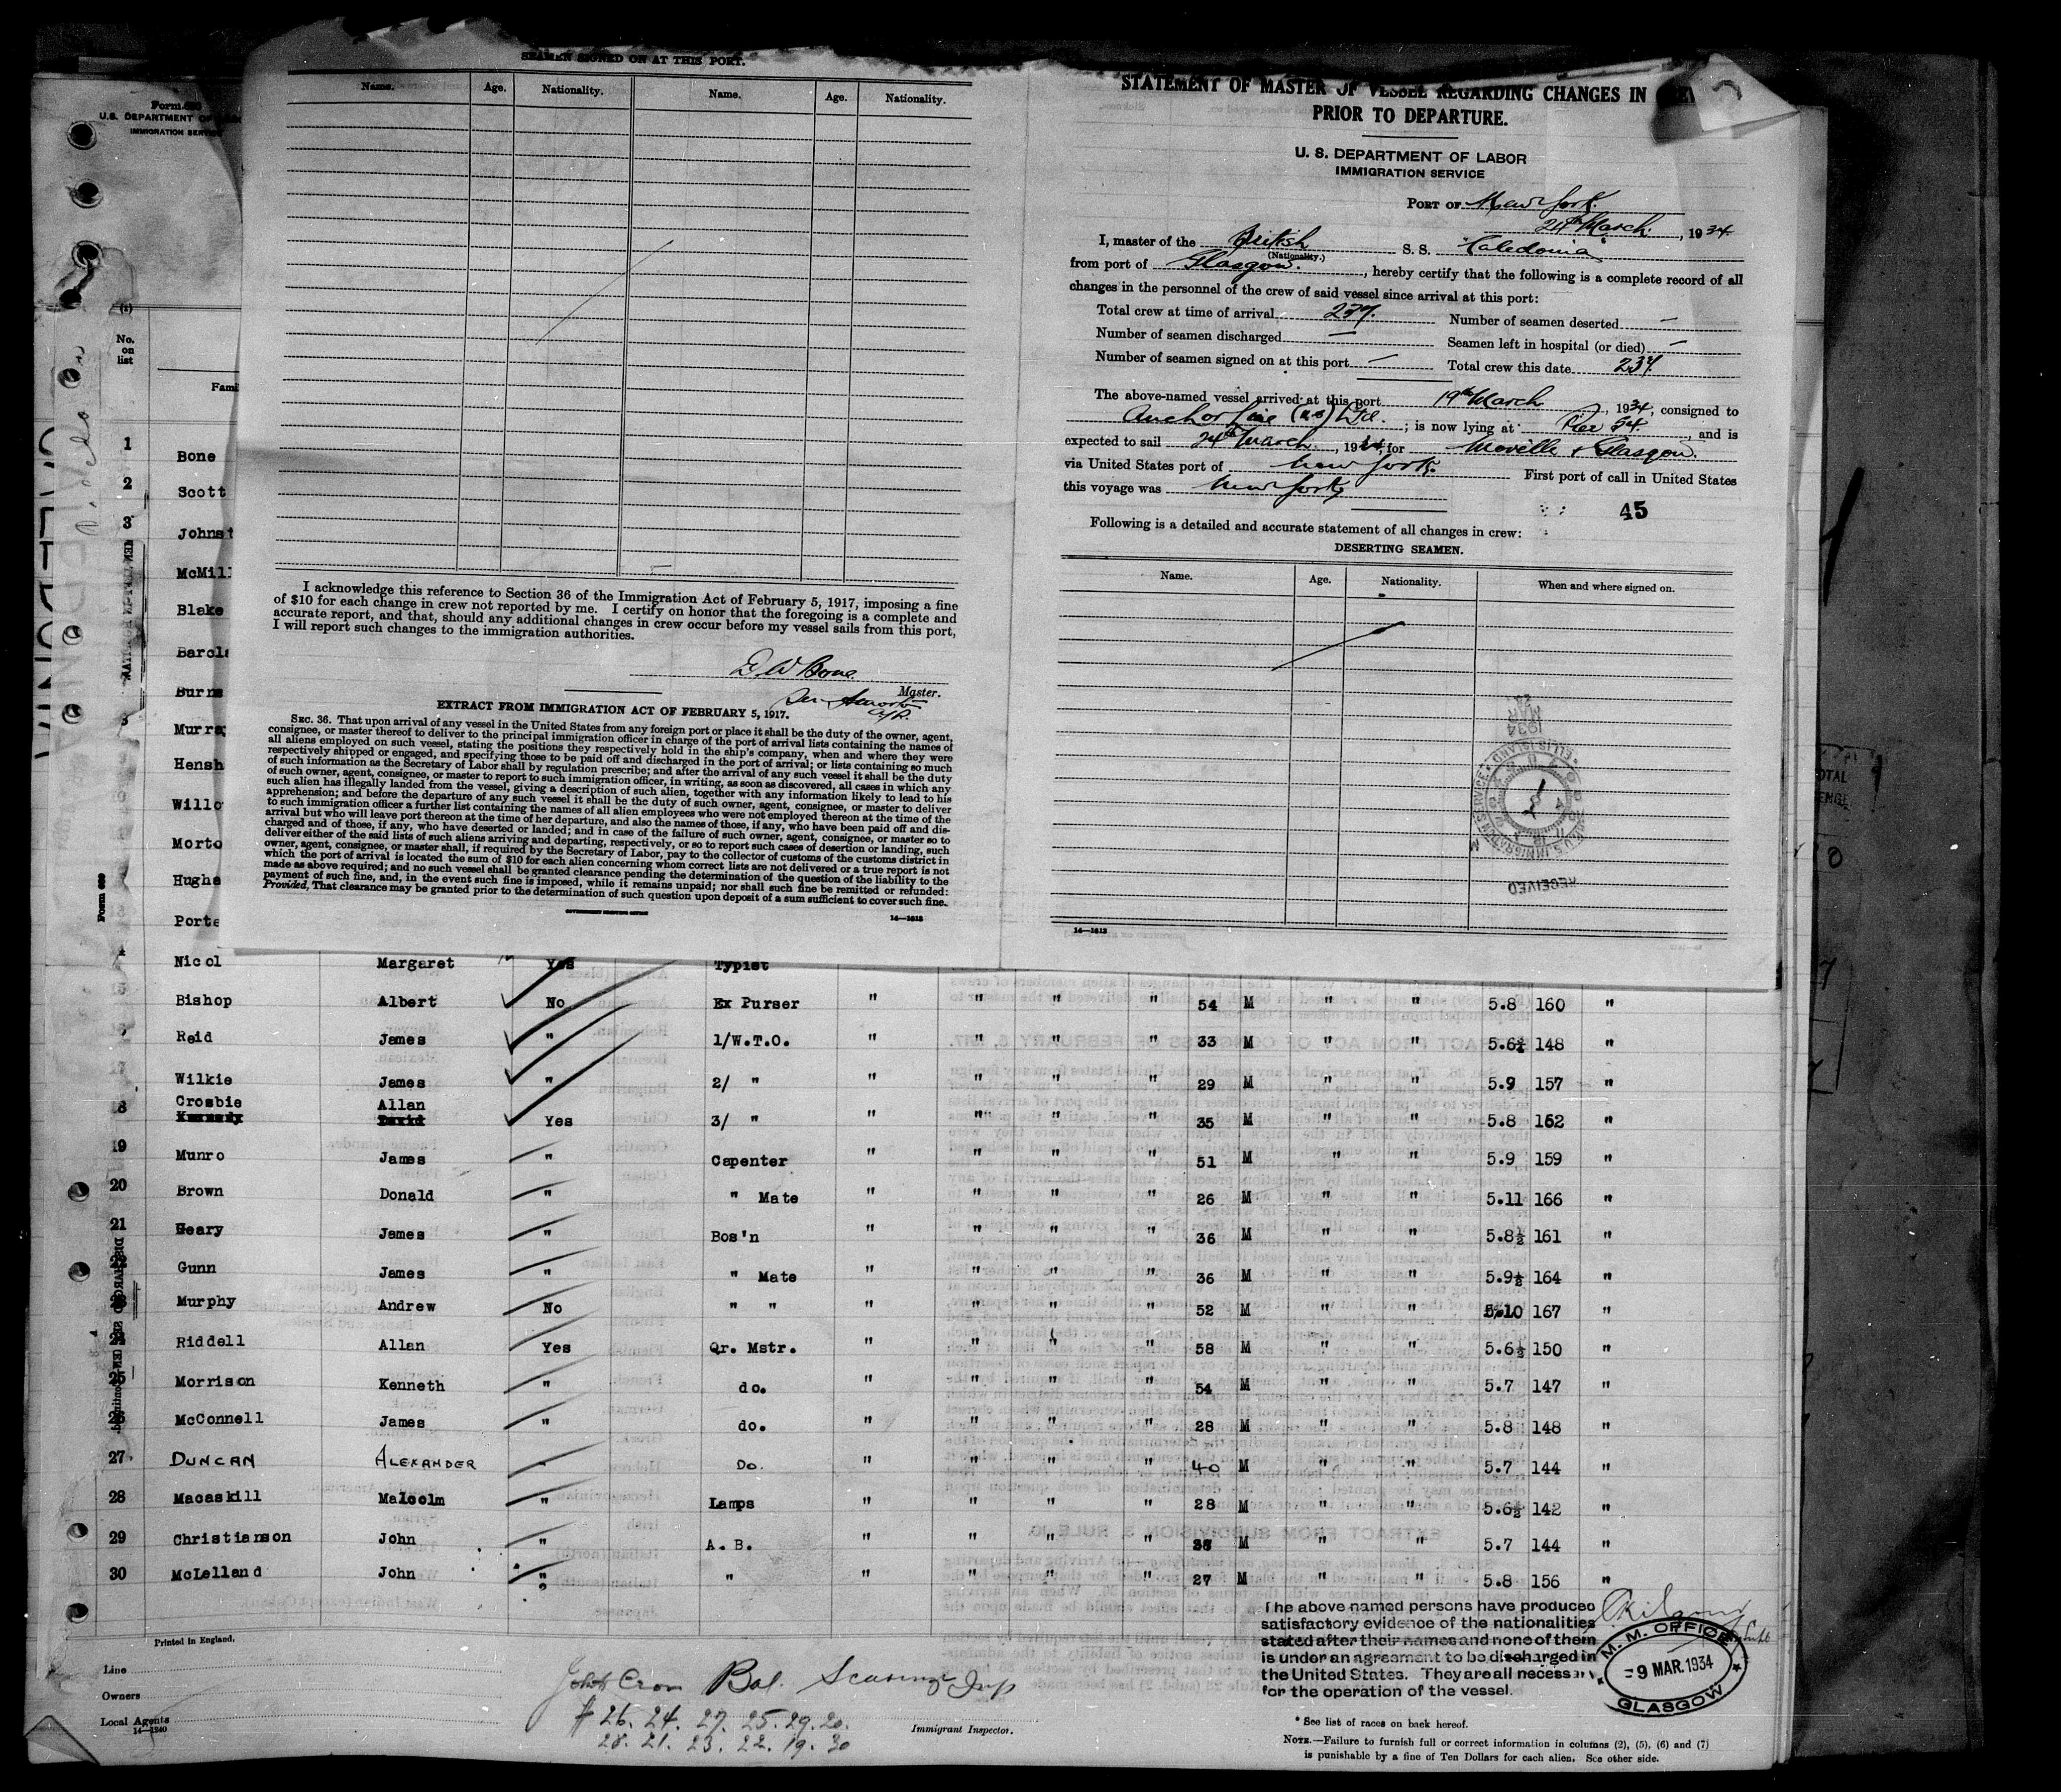 SEAMEN SIGNED ON AT THIS PORT.
Name. Age. Nationality. Name. Age. Nationality.
I acknowledge this reference to Section 36 of the Immigration Act of February 5, 1917, imposing a fine
of $10 for each change in crew not reported by me. I certify on honor that the foregoing is a complete and
accurate report, and that, should any additional changes in crew occur before my vessel sails from this port,
I will report such changes to the immigration authorities.
D W Bone
Master.
EXTRACT FROM IMMIGRATION ACT OF FEBRUARY 5, 1917.
SEC. 36. That upon arrival of any vessel in the United States from any foreign port or place it shall be the duty of the owner, agent,
consignee, or master thereof to deliver to the principal immigration officer in charge of the port of arrival lists containing the names of
all aliens employed on such vessel, stating the positions they respectively hold in the ship's company, when and where they were
respectively shipped or engaged, and specifying those to be paid off and discharged in the port of arrival; or lists containing so much
of such information as the Secretary of Labor shall by regulation prescribe; and after the arrival of any such vessel it shall be the duty
of such owner, agent, consignee, or master to report to such immigration officer, in writing, as soon as discovered, all cases in which any
such alien has illegally landed from the vessel, giving a description of such alien, together with any information likely to lead to his
apprehension; and before the departure of any such vessel it shall be the duty of such owner, agent, consignee, or master to deliver
to such immigration officer a further list containing the names of all alien employees who were not employed thereon at the time of the
arrival but who will leave port thereon at the time of her departure, and also the names of those, if any, who have been paid off and dis-
charged and of those, if any, who have deserted or landed; and in case of the failure of such owner, agent, consignee, or master so to
deliver either of the said lists of such aliens arriving and departing, respectively, or so to report such cases of desertion or landing, such
owner, agent, consignee, or master shall, if required by the Secretary of Labor, pay to the collector of customs of the customs district in
which the port of arrival is located the sum of $10 for each alien concerning whom correct lists are not delivered or a true report is not
made as above required; and no such vessel shall be granted clearance pending the determination of the question of the liability to the
payment of such fine, and, in the event such fine is imposed, while it remains unpaid; nor shall such fine be remitted or refunded:
Provided, That clearance may be granted prior to the determination of such question upon deposit of a sum sufficient to cover such fine.
GOVERNMENT PRINTING OFFICE 14—1613
STATEMENT OF MASTER OF VESSEL REGARDING CHANGES IN
PRIOR TO DEPARTURE.
U. S. DEPARTMENT OF LABOR
IMMIGRATION SERVICE
PORT OF New York.
24th March, 1934
I, master of the British S. S. "Caledonia"
(Nationality.)
from port of Glasgow., hereby certify that the following is a complete record of all
changes in the personnel of the crew of said vessel since arrival at this port:
Total crew at time of arrival 237. Number of seamen deserted —
Number of seamen discharged — Seamen left in hospital (or died) —
Number of seamen signed on at this port — Total crew this date 237
The above-named vessel arrived at this port 19th March, 1934, consigned to
Anchor Line (ns) Ltd.; is now lying at Pier 54., and is
expected to sail 24th March, 1934, for Moville & Glasgow.
via United States port of New York. First port of call in United States
this voyage was New York
45
Following is a detailed and accurate statement of all changes in crew:
DESERTING SEAMEN.
Name. Age. Nationality. When and where signed on.
24
MAR
1934
U.S. IMMIGRATION SERVICE ELLIS ISLAND
RECEIVED
14—1613
Form 680
U.S. DEPARTMENT OF
IMMIGRATION SERVICE
(1)
No.
on
list
Fami
1 Bone
2 Scott
3 Johnst
McMill
Blake
Barcla
Burns
Murra
Hensh
Willo
Morto
Hughe
Porte
Form 680
Nicol Margaret Yes Typist
Bishop Albert No Ex Purser " " " " 54 M " " 5.8 160 "
Reid James " 1/W.T.O. " " " " 33 M " " 5.6½ 148 "
17 Wilkie James " 2/ " " " " " 29 M " " 5.9 157 "
Crosbie Allan
18 Kennedy David Yes 3/ " " " " " 35 M " " 5.8 162 "
19 Munro James " Capenter " " " " 51 M " " 5.9 159 "
20 Brown Donald " " Mate " " " " 26 M " " 5.11 166 "
21 Geary James " Bos'n " " " " 36 M " " 5.8½ 161 "
Gunn James " " Mate " " " " 36 M " " 5.9½ 164 "
Murphy Andrew No " " " " " " 52 M " " 5.10 167 "
24 Riddell Allan Yes Qr. Mstr. " " " " 58 M " " 5.6½ 150 "
25 Morrison Kenneth " do. " " " " 54 M " " 5.7 147 "
26 McConnell James " do. " " " " 28 M " " 5.8 148 "
27 DUNCAN ALEXANDER " Do. " " " " 40 M " " 5.7 144 "
28 Macaskill Malcolm " Lamps " " " " 28 M " " 5.6½ 142 "
29 Christianson John " A. B. " " " " M " " 5.7 144 "
30 McLelland John " " " " " " 27 M " " 5.8 156 "
The above named persons have produced
satisfactory evidence of the nationalities
stated after their names and none of them
is under an agreement to be discharged in
the United States. They are all necessary
for the operation of the vessel.
M. M. OFFICE
9 MAR. 1934
GLASGOW
Printed in England.
Line
Owners
Local Agents
14—1240
Bal. Seamen Insp
# 26. 24. 27. 25. 29. 20.
28. 21. 23. 22. 19. 30
Immigrant Inspector.
* See list of races on back hereof.
NOTE.—Failure to furnish full or correct information in columns (2), (5), (6) and (7)
is punishable by a fine of Ten Dollars for each alien. See other side.